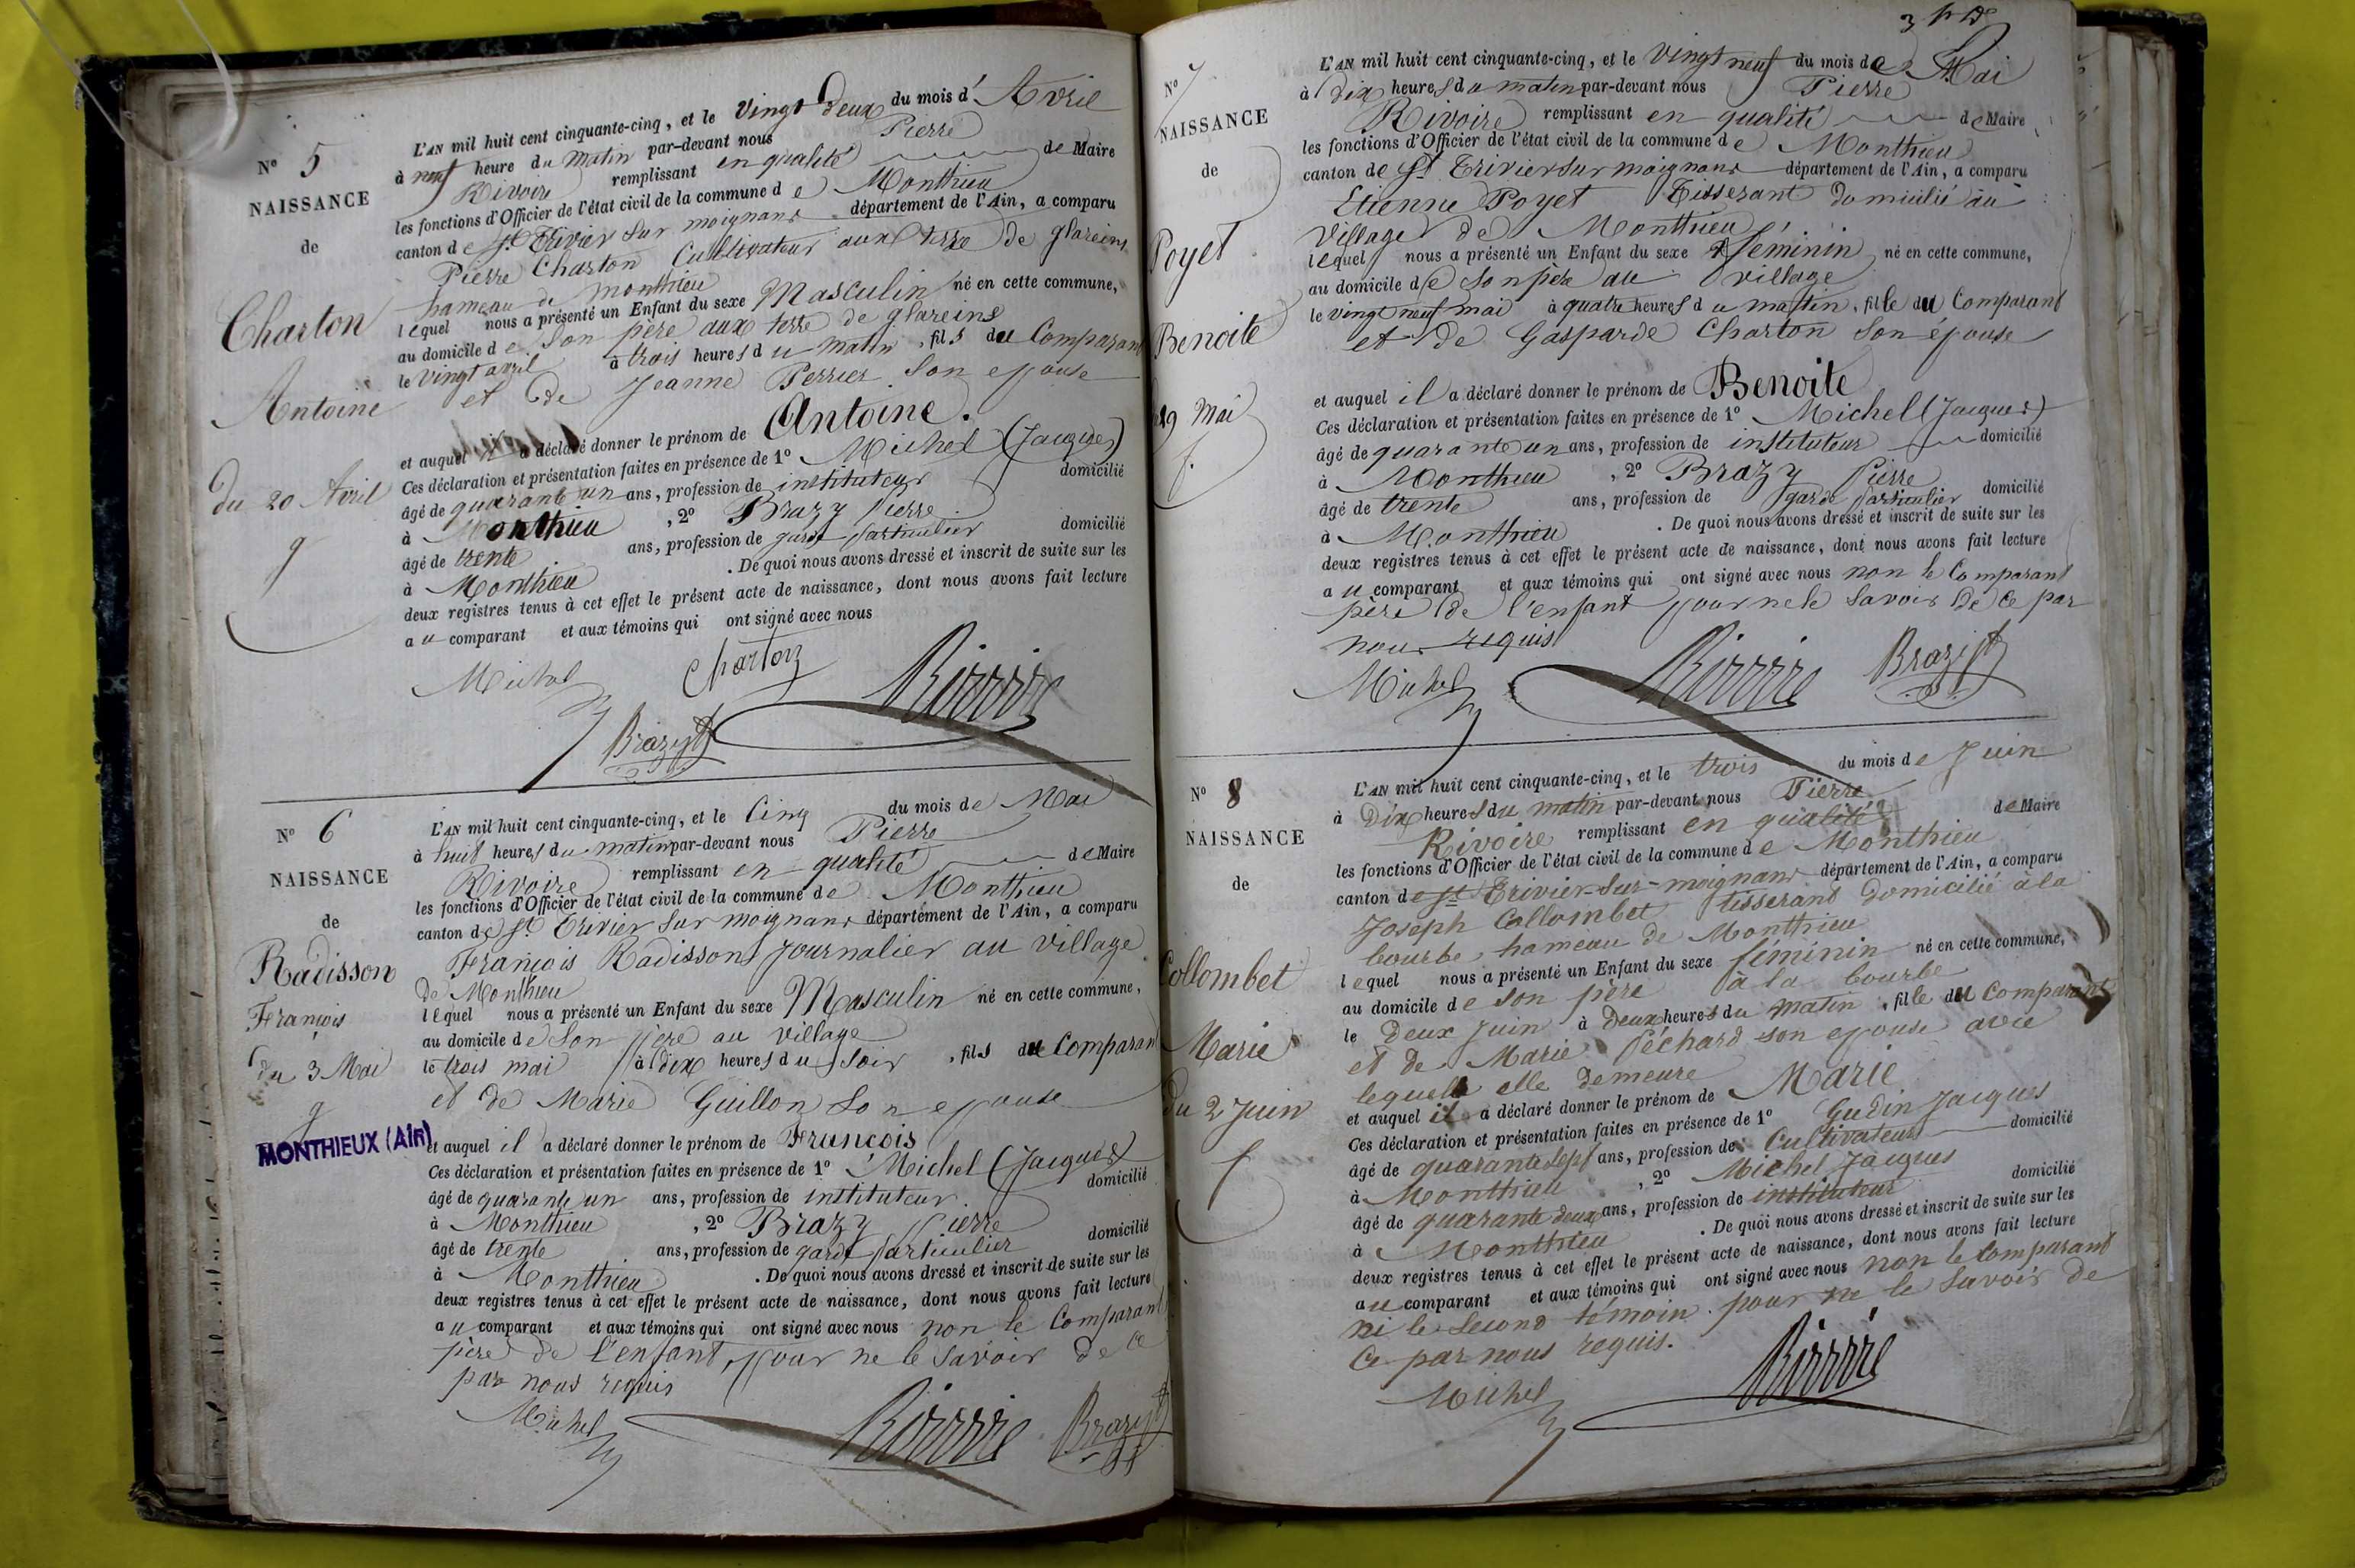 N° 5
NAISSANCE
de
Charton
Antoine
du 20 Avril
g
L'AN mil huit cent cinquante-cinq, et le Vingt Deux du mois d' Avril
à neuf heure du matin par-devant nous Pierre
Rivoire remplissant en qualité de Maire
les fonctions d'Officier de l'état civil de la commune de Monthieu
canton de St Trivier sur moignans département de l'Ain, a comparu
Pierre Charton Cultivateur aux terre de glareins
hameau de monthieu
lequel nous a présenté un Enfant du sexe Masculin né en cette commune,
au domicile de son père aux terre de glareins
le Vingt avril à trois heures du matin, fils du Comparant
et de Jeanne Perrier son epouse
et auquel il a déclaré donner le prénom de Antoine.
Ces déclaration et présentation faites en présence de 1° Michel (Jacques)
âgé de quarante un ans, profession de instituteur domicilié
à Monthieu, 2° Brazy Pierre
âgé de trente ans, profession de garde particulier domicilié
à Monthieu. De quoi nous avons dressé et inscrit de suite sur les
deux registres tenus à cet effet le présent acte de naissance, dont nous avons fait lecture
au comparant et aux témoins qui ont signé avec nous
Michel Charton Rivoire
Brazy
N° 6
NAISSANCE
de
Radisson
François
du 3 Mai
g
MONTHIEUX (Ain)
L'AN mil huit cent cinquante-cinq, et le Cinq du mois de Mai
à huit heures du matin par-devant nous Pierre
Rivoire remplissant en qualité de Maire
les fonctions d'Officier de l'état civil de la commune de Monthieu
canton de St Trivier sur moignans département de l'Ain, a comparu
François Radisson Journalier au Village
de Monthieu
lequel nous a présenté un Enfant du sexe Masculin né en cette commune,
au domicile de son père au village
le trois mai à dix heures du soir, fils du Comparant
et de Marie Guillon son epouse
et auquel il a déclaré donner le prénom de François
Ces déclaration et présentation faites en présence de 1° Michel (Jacques)
âgé de quarante un ans, profession de instituteur domicilié
à Monthieu, 2° Brazy Pierre
âgé de trente ans, profession de garde particulier domicilié
à Monthieu. De quoi nous avons dressé et inscrit de suite sur les
deux registres tenus à cet effet le présent acte de naissance, dont nous avons fait lecture
au comparant et aux témoins qui ont signé avec nous non le Comparant
père de l'enfant, pour ne le savoir de ce
par nous requis
Michel Rivoire Brazy
N° 7
NAISSANCE
de
Poyet
Benoite
29 Mai
f.
L'AN mil huit cent cinquante-cinq, et le Vingt neuf du mois de Mai
à dix heures du matin par-devant nous Pierre
Rivoire remplissant en qualité de Maire
les fonctions d'Officier de l'état civil de la commune de Monthieu
canton de St Trivier sur moignans département de l'Ain, a comparu
Etienne Poyet Tisserant domicilié au
Village de Monthieu
lequel nous a présenté un Enfant du sexe féminin né en cette commune,
au domicile de son père au village
le vingt neuf mai à quatre heures du matin, fille du Comparant
et de Gasparde Charton son épouse
et auquel il a déclaré donner le prénom de Benoite
Ces déclaration et présentation faites en présence de 1° Michel (Jacques)
âgé de quarante un ans, profession de instituteur domicilié
à Monthieu, 2° Brazy Pierre
âgé de trente ans, profession de garde particulier domicilié
à Monthieu. De quoi nous avons dressé et inscrit de suite sur les
deux registres tenus à cet effet le présent acte de naissance, dont nous avons fait lecture
au comparant et aux témoins qui ont signé avec nous non le Comparant
père de l'enfant pour ne le savoir de ce par
nous requis
Michel Rivoire Brazy
N° 8
NAISSANCE
de
Collombet
Marie
du 2 Juin
f
L'AN mil huit cent cinquante-cinq, et le trois du mois de Juin
à Dix heures du matin par-devant nous Pierre
Rivoire remplissant en qualité de Maire
les fonctions d'Officier de l'état civil de la commune de Monthieu
canton de St Trivier-sur-moignans département de l'Ain, a comparu
Joseph Collombet tisserant domicilié à la
bourbe hameau de Monthieu
lequel nous a présenté un Enfant du sexe féminin né en cette commune,
au domicile de son père à la bourbe
le deux Juin à Deux heures du matin, fille du Comparant
et de Marie Péchard son epouse avec
lequelle elle demeure
et auquel il a déclaré donner le prénom de Marie
Ces déclaration et présentation faites en présence de 1° Gudin Jacques
âgé de quarante sept ans, profession de Cultivateur domicilié
à Monthieu, 2° Michel Jacques
âgé de quarante deux ans, profession de instituteur domicilié
à Monthieu. De quoi nous avons dressé et inscrit de suite sur les
deux registres tenus à cet effet le présent acte de naissance, dont nous avons fait lecture
au comparant et aux témoins qui ont signé avec nous non le Comparant
ni le second témoin pour ne le savoir de
ce par nous requis.
Michel Rivoire